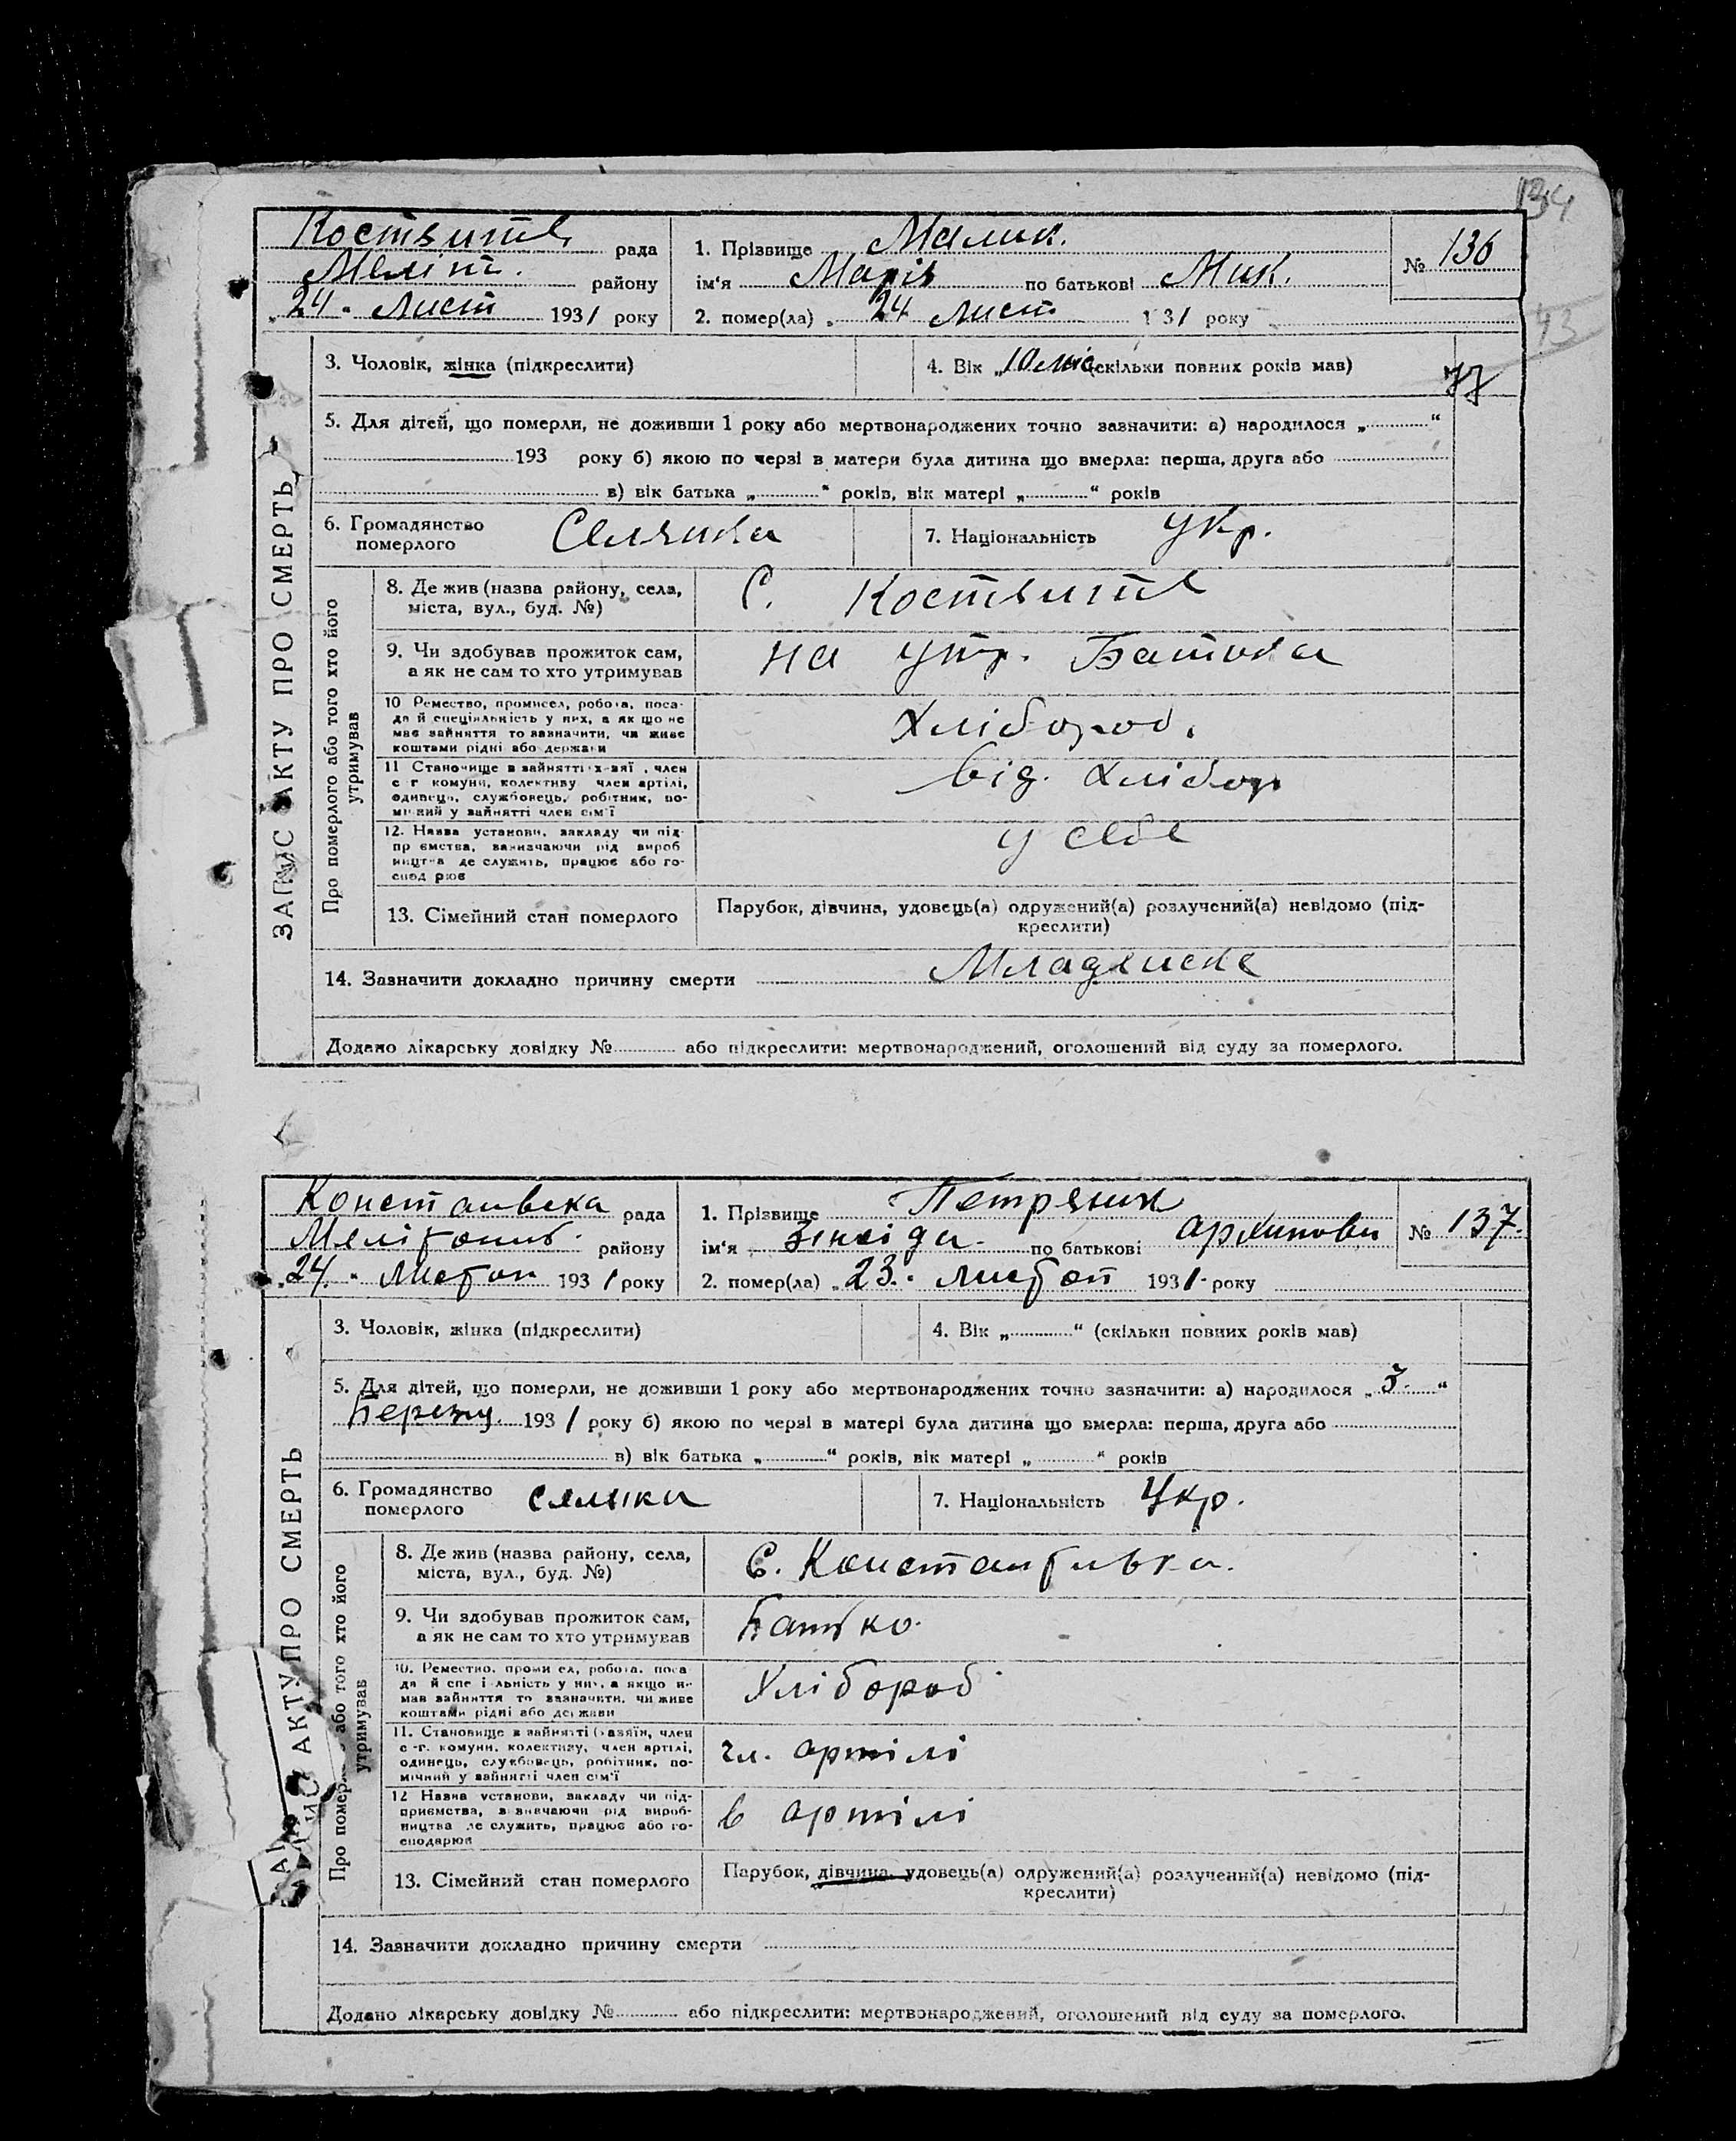 134
43
рада
1. Прізвище Малик.
№ 136
Меліт. району
ім'я Марія по батькові Мик.
„24" Лист 1931 року
2. помер(ла) „24 Лист 1 31 року
ЗАПИС АКТУ ПРО СМЕРТЬ
3. Чоловік, жінка (підкреслити)
4. Вік „10 міс (скільки повних років мав)
77
5. Для дітей, що померли, не доживши 1 року або мертвонароджених точно зазначити: а) народилося „ “
193 року б) якою по черзі в матери була дитина що вмерла: перша, друга або
в) вік батька „ “ років, вік матері „ “ років
6. Громадянство померлого Селянка
7. Національність Укр.
Про померлого або того хто його утримував
8. Де жив (назва району, села,
міста, вул., буд. №)
С.
9. Чи здобував прожиток сам,
а як не сам то хто утримував
на утр. Батька
10 Ремество, промисел, робота, поса-
да й спеціяльність у них, а як що не
має зайняття то зазначити, чи живе
коштами рідні або держави
Хлібороб.
11 Становище в зайнятті х-вяї , член
с г комуни, колективу член артілі,
одинець, службовець, робітник, по-
мічний у зайнятті член сім'ї
від. хлібор
12. Назва установи, закладу чи під-
пр ємства, вазначаючи рід вироб
ництва де служить, працює або го-
спод рює
у себе
13. Сімейний стан померлого
Парубок, дівчина, удовець(а) одружений(а) розлучений(а) невідомо (під-
креслити)
14. Зазначити докладно причину смерти Младенска
Додано лікарську довідку № або підкреслити: мертвонароджений, оголошений від суду за померлого.
рада
1. Прізвище Петряник
№ 137.
району
ім'я Зінаіда. по батькові Архипови
„24." Листоп 1931 року
2. помер(ла) „23." листоп 1931 року
ЗАПИС АКТУ ПРО СМЕРТЬ
3. Чоловік, жінка (підкреслити)
4. Вік „ “ (скільки повних років мав)
5. Для дітей, що померли, не доживши 1 року або мертвонароджених точно зазначити: а) народилося „ “
193 1 року б) якою по черзі в матері була дитина що вмерла: перша, друга або
в) вік батька „ “ років, вік матері „ “ років
6. Громадянство померлого селянка
7. Національність Укр.
Про померлого або того хто його утримував
8. Де жив (назва району, села,
міста, вул., буд. №)
С. Константинвка.
9. Чи здобував прожиток сам,
а як не сам то хто утримував
Батько.
10. Ремество, проми ел, робота, поса
да й спе і льність у них, а якщо н-
мав зайняття то зазначити, чи живе
коштами рідні або держави
Хлібороб
11. Становище в зайнятті (хазяїн, член
с -г. комуни, колективу, член артілі,
одинець, службовець, робітник, по-
мічний у зайнятті член сім'ї
чл. артілі
12 Назва установи, закладу чи під-
приємства, в значаючи рід вироб-
ництва де служить, працює або го-
сподарює
в артілі
13. Сімейний стан померлого
Парубок, дівчина, удовець(а) одружений(а) розлучений(а) невідомо (під-
креслити)
14. Зазначити докладно причину смерти
Додано лікарську довідку № або підкреслити: мертвонароджений, оголошений від суду за померлого.